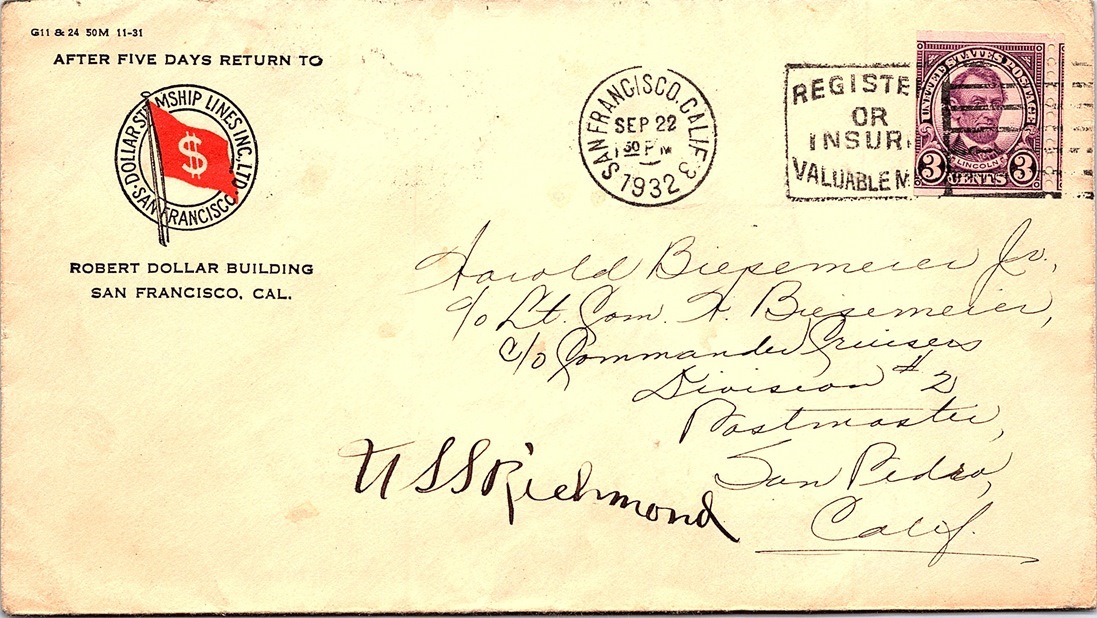 G11 & 24 50M 11-31
AFTER FIVE DAYS RETURN TO
DOLLAR STEAMSHIP LINES INC., LTD.
SAN FRANCISCO
$
ROBERT DOLLAR BUILDING
SAN FRANCISCO, CAL.
SAN FRANCISCO, CALIF. 3
SEP 22
30 PM
1932
REGISTE
OR
INSUR
VALUABLE M
UNITED STATES POSTAGE
LINCOLN
3 CENTS 3
Harold Biesemeier Jr.,
c/o Lt. Com. H. Biesemeier,
c/o Commander Cruisers
Division #2
Postmaster,
San Pedro,
Calif.
USS Richmond